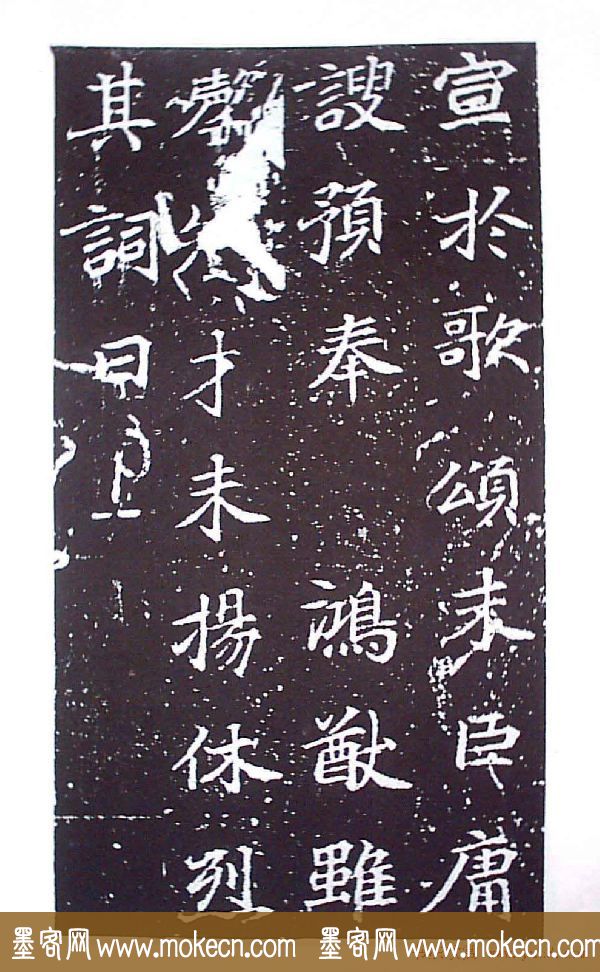 宣於歌頌末臣庸
謏預奉鴻猷雖
罄才未揚休烈
其詞曰
墨客网 www.mokecn.com 墨客网 www.mokecn.com